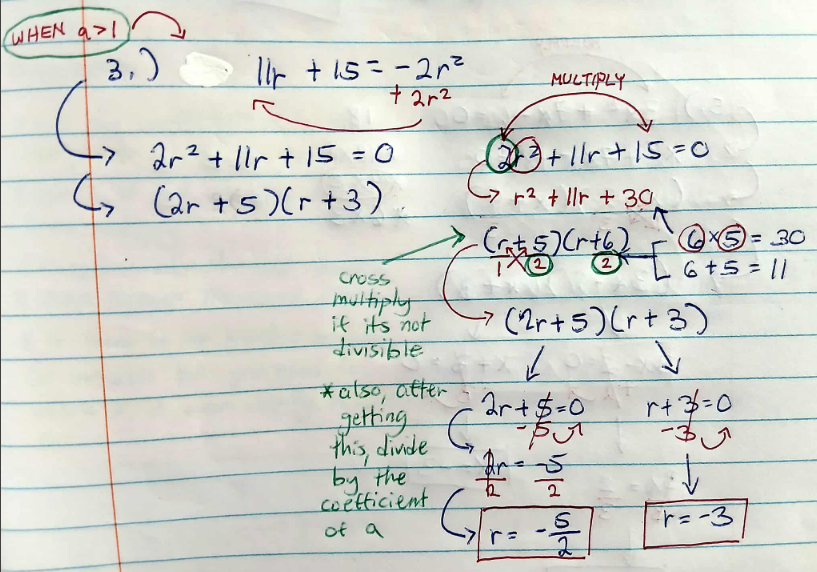 WHEN a>1
3.) 11r + 15 = -2r²
+ 2r²
2r² + 11r + 15 = 0
(2r + 5)(r + 3)
MULTIPLY
2r² + 11r + 15 = 0
r² + 11r + 30
6 × 5 = 30
6 + 5 = 11
(r + 5)(r + 6)
1 2 2
cross
multiply
if its not
divisible
(2r + 5)(r + 3)
*also, after
getting
this, divide
by the
coefficient
of a
2r + 5 = 0
-5
2r = -5
2 2
r = -5/2
r + 3 = 0
-3
r = -3